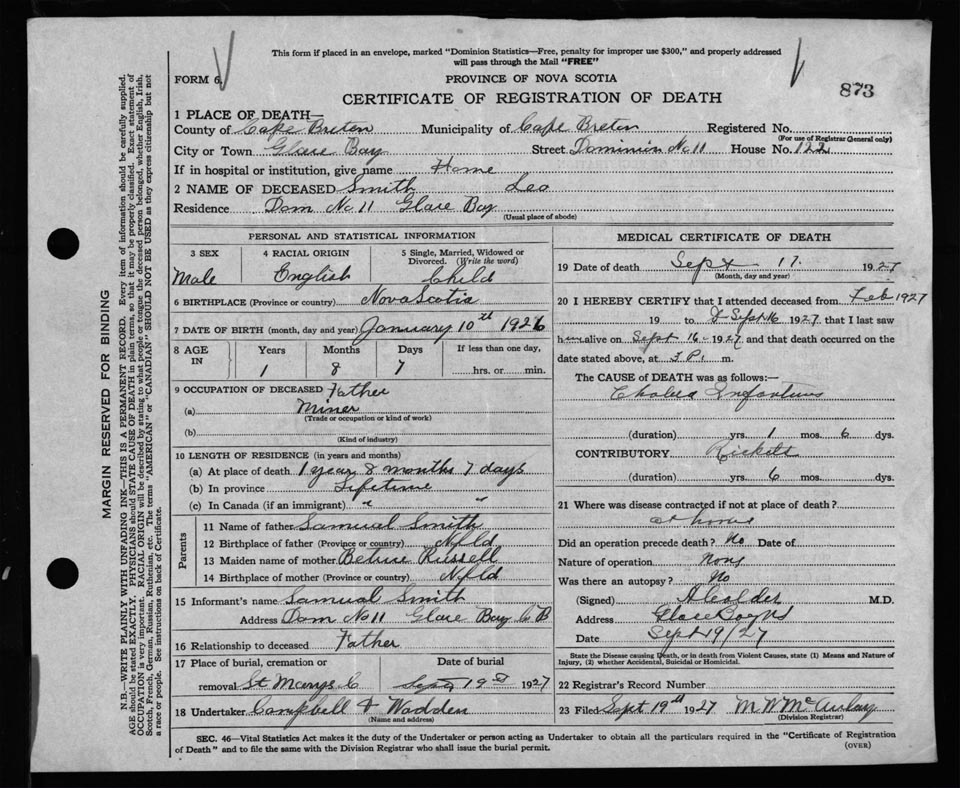 This form if placed in an envelope, marked "Dominion Statistics—Free, penalty for improper use $300," and properly addressed
will pass through the Mail "FREE"
FORM 6.
PROVINCE OF NOVA SCOTIA
873
CERTIFICATE OF REGISTRATION OF DEATH
1 PLACE OF DEATH—
County of Cape Breton Municipality of Cape Breton Registered No.
(For use of Registrar General only)
City or Town Glace Bay Street Dominion No 11 House No. 122
If in hospital or institution, give name Home
2 NAME OF DECEASED Smith Leo
Residence Dom No 11 Glace Bay
(Usual place of abode)
PERSONAL AND STATISTICAL INFORMATION
3 SEX 4 RACIAL ORIGIN 5 Single, Married, Widowed or
Divorced. (Write the word)
Male English Child
6 BIRTHPLACE (Province or country) Nova Scotia
7 DATE OF BIRTH (month, day and year) January 10th 1926
8 AGE IN Years Months Days If less than one day,
1 8 7 hrs. or min.
9 OCCUPATION OF DECEASED Father
(a) Miner
(Trade or occupation or kind of work)
(b)
(Kind of industry)
10 LENGTH OF RESIDENCE (in years and months)
(a) At place of death 1 year 8 months 7 days
(b) In province Lifetime
(c) In Canada (if an immigrant) " "
Parents
11 Name of father Samual Smith
12 Birthplace of father (Province or country) Nfld
13 Maiden name of mother Russell
14 Birthplace of mother (Province or country) Nfld
15 Informant's name Samual Smith
Address Dom No 11 Glace Bay C B
16 Relationship to deceased Father
17 Place of burial, cremation or Date of burial
removal St Marys C Sept 19 1927
18 Undertaker Campbell & Wadden
(Name and address)
MEDICAL CERTIFICATE OF DEATH
19 Date of death Sept 17. 1927
(Month, day and year)
20 I HEREBY CERTIFY that I attended deceased from Feb 1927
19 to Sept 16 1927, that I last saw
him alive on Sept 16 1927 and that death occurred on the
date stated above, at P. m.
The CAUSE OF DEATH was as follows:—
Cholera Infantum
(duration) yrs. 1 mos. 6 dys.
CONTRIBUTORY Rickets
(duration) yrs. 6 mos. dys.
21 Where was disease contracted if not at place of death?
at home
Did an operation precede death? No Date of
Nature of operation None
Was there an autopsy? No
(Signed) A Calder M.D.
Address Glace Bay NS
Date Sept 19/27
State the Disease causing Death, or in death from Violent Causes, state (1) Means and Nature of
Injury, (2) whether Accidental, Suicidal or Homicidal.
22 Registrar's Record Number
23 Filed Sept 19th 1927 M W McAulay
(Division Registrar)
SEC. 46—Vital Statistics Act makes it the duty of the Undertaker or person acting as Undertaker to obtain all the particulars required in the "Certificate of Registration
of Death" and to file the same with the Division Registrar who shall issue the burial permit.
(OVER)
MARGIN RESERVED FOR BINDING
N.B.—WRITE PLAINLY WITH UNFADING INK—THIS IS A PERMANENT RECORD. Every item of information should be carefully supplied.
AGE should be stated EXACTLY. PHYSICIANS should STATE CAUSE OF DEATH in plain terms, so that it may be properly classified. Exact statement of
OCCUPATION is very important. RACIAL ORIGIN will be described by stating to what people or tongue the deceased person belonged, whether English, Irish,
Scotch, French, German, Russian, Ruthenian, etc. The terms "AMERICAN" or "CANADIAN" SHOULD NOT BE USED as they express citizenship but not
a race or people. See instructions on back of Certificate.